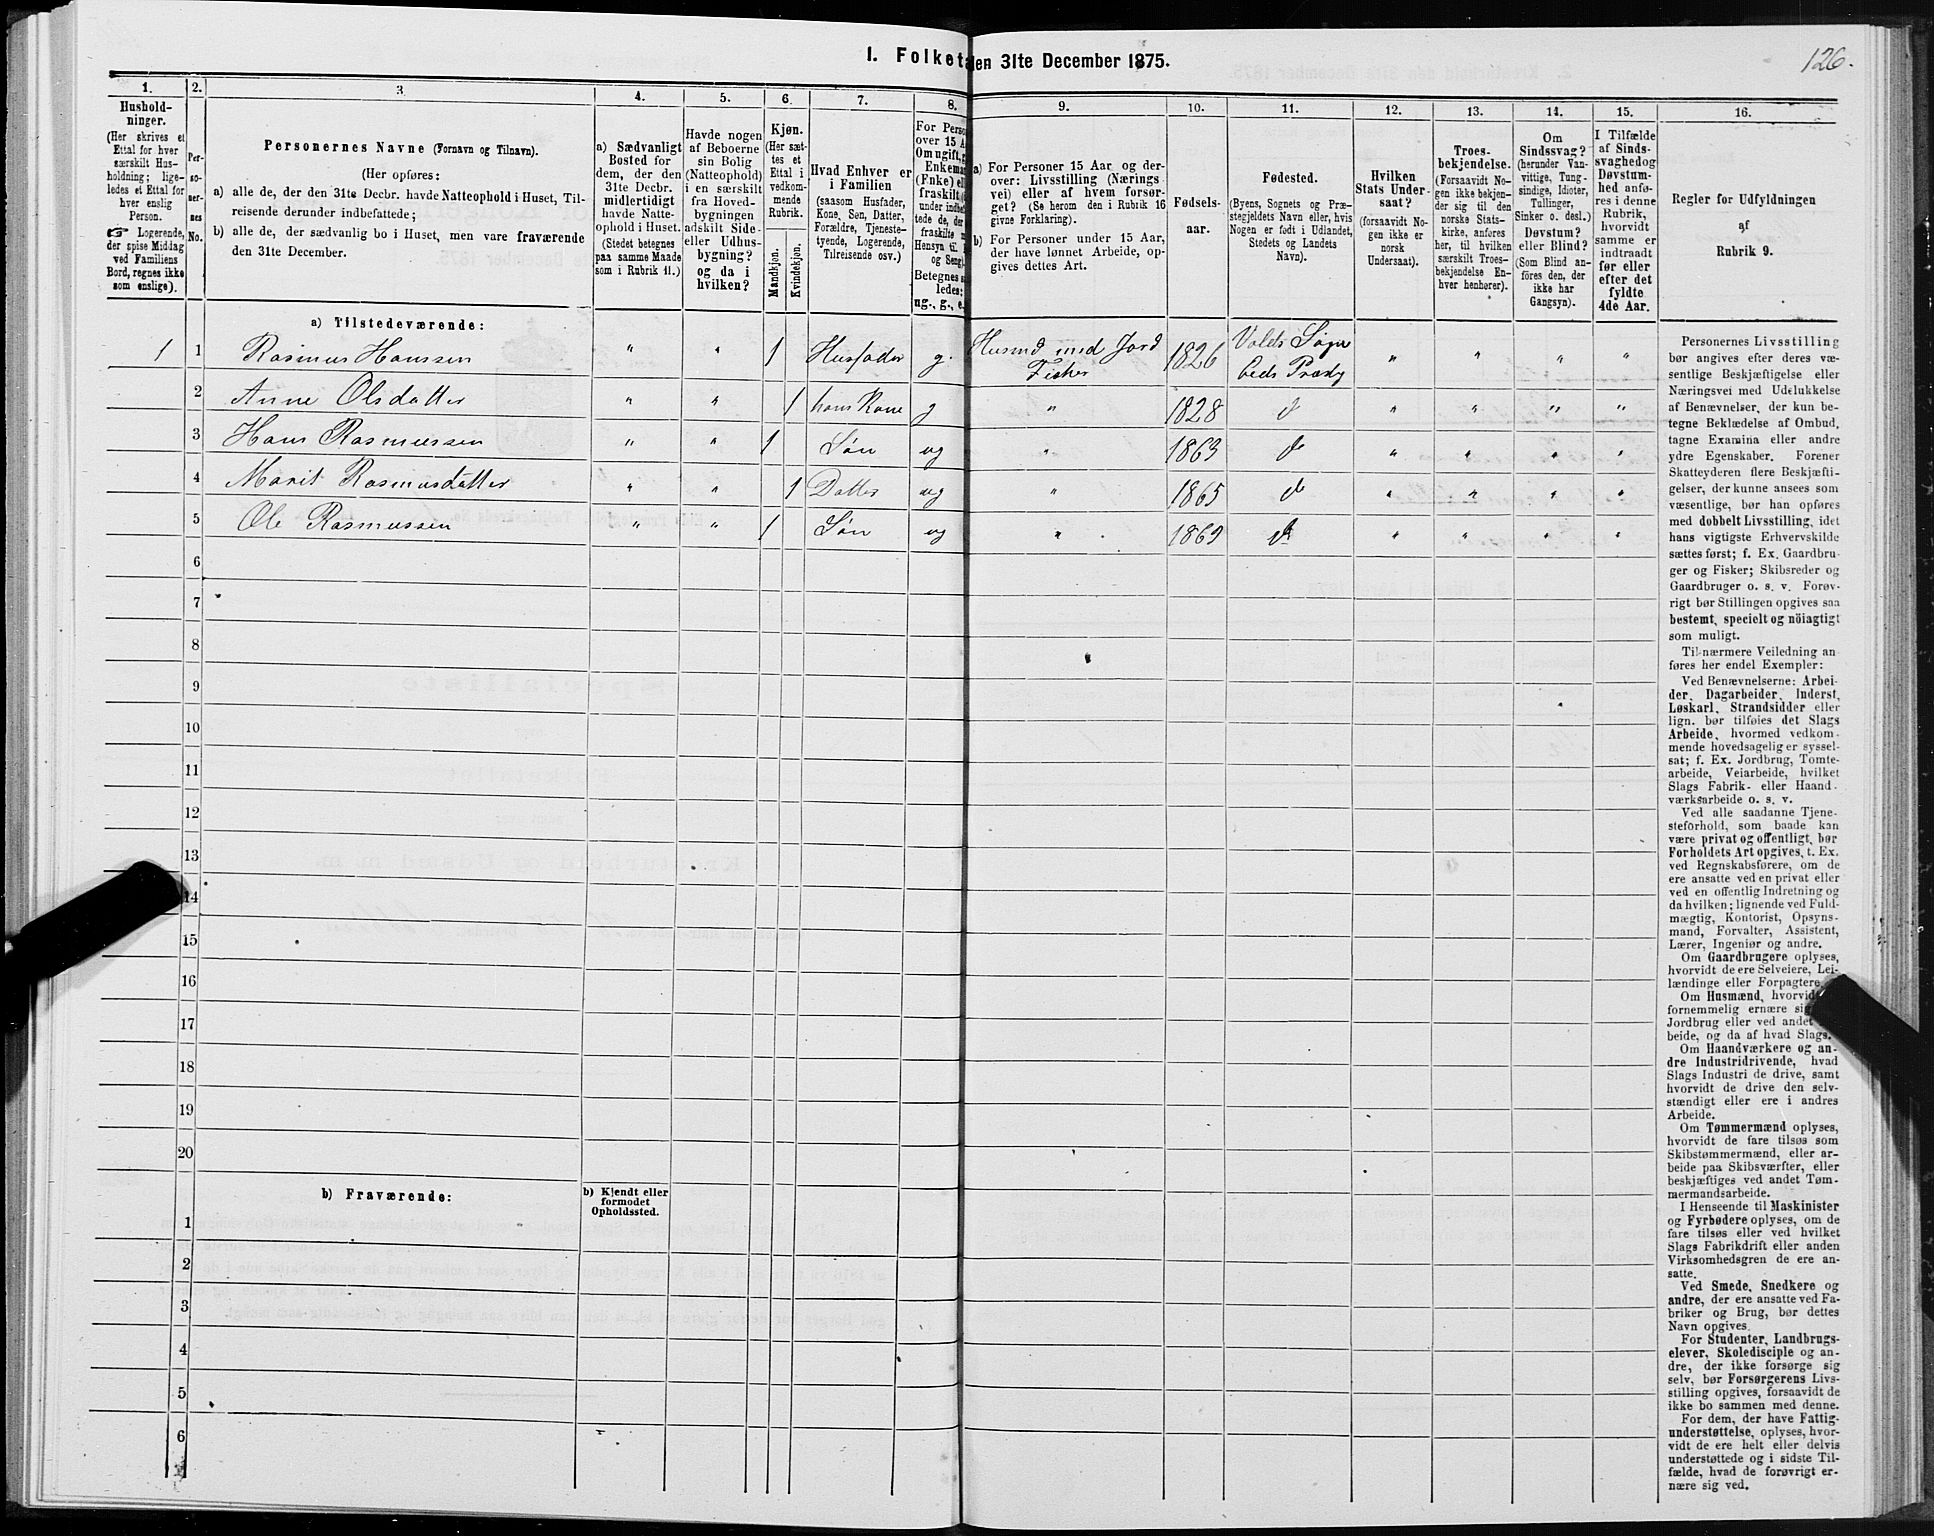 I. Folketa
den 31te December 1875.
126.
1.
2.
3
4.
5.
6.
7.
8.
9.
10.
11.
12.
13.
14.
15.
16.
Hushold-
ninger.
(Her skrives et
Ettal for hver
særskilt Hus-
holdning; lige-
ledes et Ettal for
hver enslig
Person.
☞ Logerende,
der spise Middag
ved Familiens
Bord, regnes ikke
som enslige).
Per-
so-
ner-
nes
No.
Personernes Navne (Fornavn og Tilnavn).
(Her opføres:
a) alle de, der den 31te Decbr. havde Natteophold i Huset, Til-
reisende derunder indbefattede;
b) alle de, der sædvanlig bo i Huset, men vare fraværende
den 31te December.
a) Sædvanligt
Bosted for
dem, der den
31te Decbr.
midlertidigt
havde Natte-
ophold i Huset.
(Stedet betegnes
paa samme Maade
som i Rubrik 11.)
Havde nogen
af Beboerne
sin Bolig
(Natteophold)
i en særskilt
fra Hoved-
bygningen
adskilt Side-
eller Udhus-
bygning?
og da i
hvilken?
Kjøn.
(Her sæt-
tes et
Ettal i
vedkom-
mende
Rubrik.
Mandkjøn.
Kvindekjøn.
Hvad Enhver er
i Familien
(saasom Husfader,
Kone, Søn, Datter,
Forældre, Tjeneste-
tyende, Logerende,
Tilreisende osv.)
For Perso
over 15 A
Om ugift, g
Enkeman
(Fnke) el
fraskilt (
under indbe
tede de, der
fraskilte m
Hensyn til
og Seng).
Betegnes s
ledes:
ug., g., e.
a) For Personer 15 Aar og der-
over: Livsstilling (Nærings
vei) eller af hvem forsør-
get? (Se herom den i Rubrik 16
givne Forklaring).
b) For Personer under 15 Aar,
der have lønnet Arbeide, op-
gives dettes Art.
Fødsels-
aar.
Fødested.
(Byens, Sognets og Præ-
stegjeldets Navn eller, hvis
Nogen er født i Udlandet,
Stedets og Landets
Navn).
Hvilken
Stats Under-
saat?
(forsaavidt No-
gen ikke er
norsk
Undersaat).
Troes-
bekjendelse.
(Forsaavidt No-
gen ikke bekjen-
der sig til den
norske Stats-
kirke, anføres
her, til hvilken
særskilt Troes-
bekjendelse En-
hver henhører).
Om
Sindssvag?
(herunder Van-
vittige, Tung-
sindige, Idioter,
Tullinger,
Sinker o. desl.)
Døvstum?
eller Blind?
(Som Blind an-
føres den, der
ikke har
Gangsyn).
I Tilfælde
af Sinds-
svaghedog
Døvstum-
hed anfø-
res i denne
Rubrik,
hvorvidt
samme er
indtraadt
før eller
efter det
fyldte
4de Aar.
Regler for Udfyldningen
af
Rubrik 9.
a) Tilstedeværende:
1 1 Rasmus Hanssen " " 1 Husfader g. Husmd med Jord Fisker 1826 Volds Sogn Eeds Præstg " " " "
2 Anne Olsdatter " " 1 hans Kone g " 1828 d " " " "
3 Hans Rasmussen " " 1 Søn ug " 1863 d " " " "
4 Marit Rasmusdatter " " 1 Datter ug " 1865 d " " " "
5 Ole Rasmussen " " 1 Søn ug " 1869 d " " " "
6
7
8
9
10
11
12
13
14
15
16
17
18
19
20
b) Fraværende:
b) Kjendt eller
formodet
Opholdssted.
1
2
3
4
5
6
Personernes Livsstilling
bør angives efter deres væ-
sentlige Beskjæftigelse eller
Næringsvei med Udelukkelse
af Benævnelser, der kun be-
tegne Beklædelse af Ombud,
tagne Examina eller andre
ydre Egenskaber. Forener
Skatteyderen flere Beskjæfti-
gelser, der kunne ansees som
væsentlige, bør han opføres
med dobbelt Livsstilling, idet
hans vigtigste Erhvervskilde
sættes først; f. Ex. Gaardbru-
ger og Fisker; Skibsreder og
Gaardbruger o. s. v. Forøv-
rigt bør Stillingen opgives saa
bestemt, specielt og nöiagtigt
som muligt.
Til nærmere Veiledning an-
føres her endel Exempler:
Ved Benævnelserne: Arbei-
der, Dagarbeider, Inderst,
Løskarl, Strandsidder eller
lign. bør tilføies det Slags
Arbeide, hvormed vedkom-
mende hovedsagelig er syssel-
sat; f. Ex. Jordbrug, Tomte-
arbeide, Veiarbeide, hvilket
Slags Fabrik- eller Haand-
værksarbeide o. s. v.
Ved alle saadanne Tjene-
steforhold, som baade kan
være privat og offentligt, bør
Forholdets Art opgives, t. Ex.
ved Regnskabsførere, om de
ere ansatte ved en privat eller
ved en offentlig Indretning og
da hvilken; lignende ved Fuld-
mægtig, Kontorist, Opsyns-
mand, Forvalter, Assistent,
Lærer, Ingeniør og andre.
Om Gaardbrugere oplyses,
hvorvidt de ere Selveiere, Lei-
lændinge eller Forpagtere.
Om Husmænd, hvorvidt
fornemmelig ernære si
Jordbrug eller ved andet
beide, og da af hvad Slags.
Om Haandværkere og an-
dre Industridrivende, hvad
Slags Industri de drive, samt
hvorvidt de drive den selv-
stændigt eller ere i andres
Arbeide.
Om Tømmermænd oplyses,
hvorvidt de fare tilsøs som
Skibstømmermænd, eller ar-
beide paa Skibsværfter, eller
beskjæftiges ved andet Tøm-
mermandsarbeide.
I Henseende til Maskinister
og Fyrbødere oplyses, om de
fare tilsøs eller ved hvilket
Slags Fabrikdrift eller anden
Virksomhedsgren de ere an-
satte.
Ved Smede, Snedkere og
andre, der ere ansatte ved Fa-
briker og Brug, bør dettes
Navn opgives.
For Studenter, Landbrugs-
elever, Skoledisciple og an-
dre, der ikke forsørge sig
selv, bør Forsørgerens Livs-
stilling opgives, forsaavidt de
ikke bo sammen med denne.
For dem, der have Fattig-
understøttelse, oplyses, hvor-
vidt de ere helt eller delvis
understøttede og i sidste Til-
fælde, hvad de forøvrigt er-
nære sig ved.